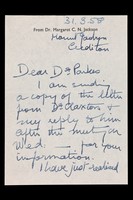 31.3.58
From Dr. Margaret C. N. Jackson
Crediton
Dear Dr Parkes
I am sending
a copy of the letter
from Dr Claxton &
my reply to him
after the meeting on
Wed. — for your
information.
I have just received